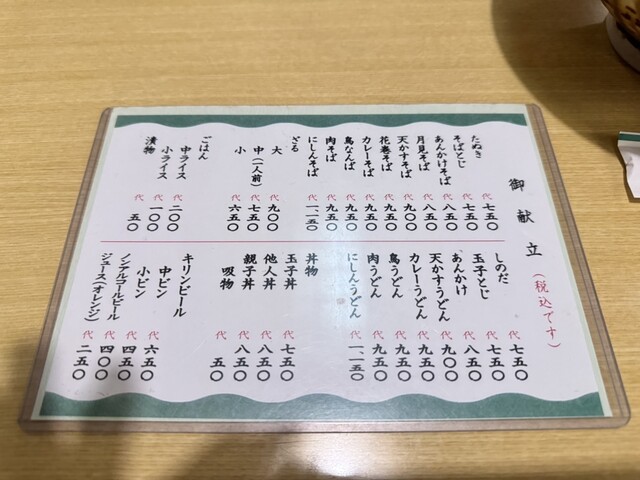 御献立(税込です)
たぬき 代 七五〇
そばとじ 代 七五〇
あんかけそば 代 八五〇
月見そば 代 八五〇
天かすそば 代 九〇〇
花巻そば 代 九五〇
カレーそば 代 九五〇
鳥なんば 代 九五〇
肉そば 代 九五〇
にしんそば 代 一、一五〇
ざる
大 代 九〇〇
中(一人前) 代 七五〇
小 代 六五〇
ごはん
中ライス 代 二〇〇
小ライス 代 一〇〇
漬物 代 五〇
しのだ 代 七五〇
玉子とじ 代 七五〇
あんかけ 代 八五〇
天かすうどん 代 九〇〇
カレーうどん 代 九五〇
鳥うどん 代 九五〇
肉うどん 代 九五〇
にしんうどん 代 一、一五〇
丼物
玉子丼 代 七五〇
他人丼 代 八五〇
親子丼 代 八五〇
吸物 代 五〇
キリンビール
中ビン 代 六五〇
小ビン 代 四五〇
ノンアルコールビール 代 四〇〇
ジュース(オレンジ) 代 二五〇